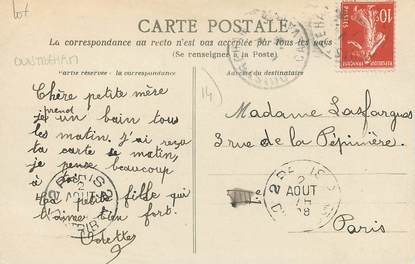 lot
CARTE POSTALE
La correspondance au recto n'est pas acceptée par tous les pays
(Se renseigner à la Poste)
Partie réservée à la correspondance
Adresse du destinataire
OUISTREHAM
14
10
POSTES
Chère petite mère
je prend un bain tous
les matin. J'ai reçu
ta carte se matin,
je pense beaucoup
à toi.
Ta petite fille qui
t'aime bien fort.
Odette
Madame Lasfargues
3 rue de la Pépinière.
Paris
PARIS
2
AOUT
08
PARIS
2
AOUT
08